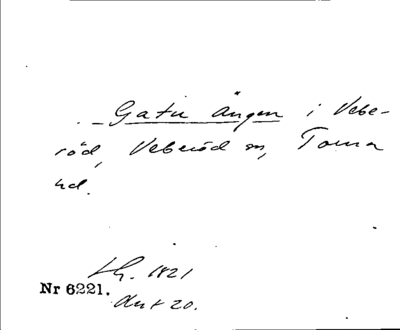 Gatu Ängen i Vebe-
röd, Veberöd sn, Torna
hd.
Lh. 1821
Nr 6221.
Akt 20.